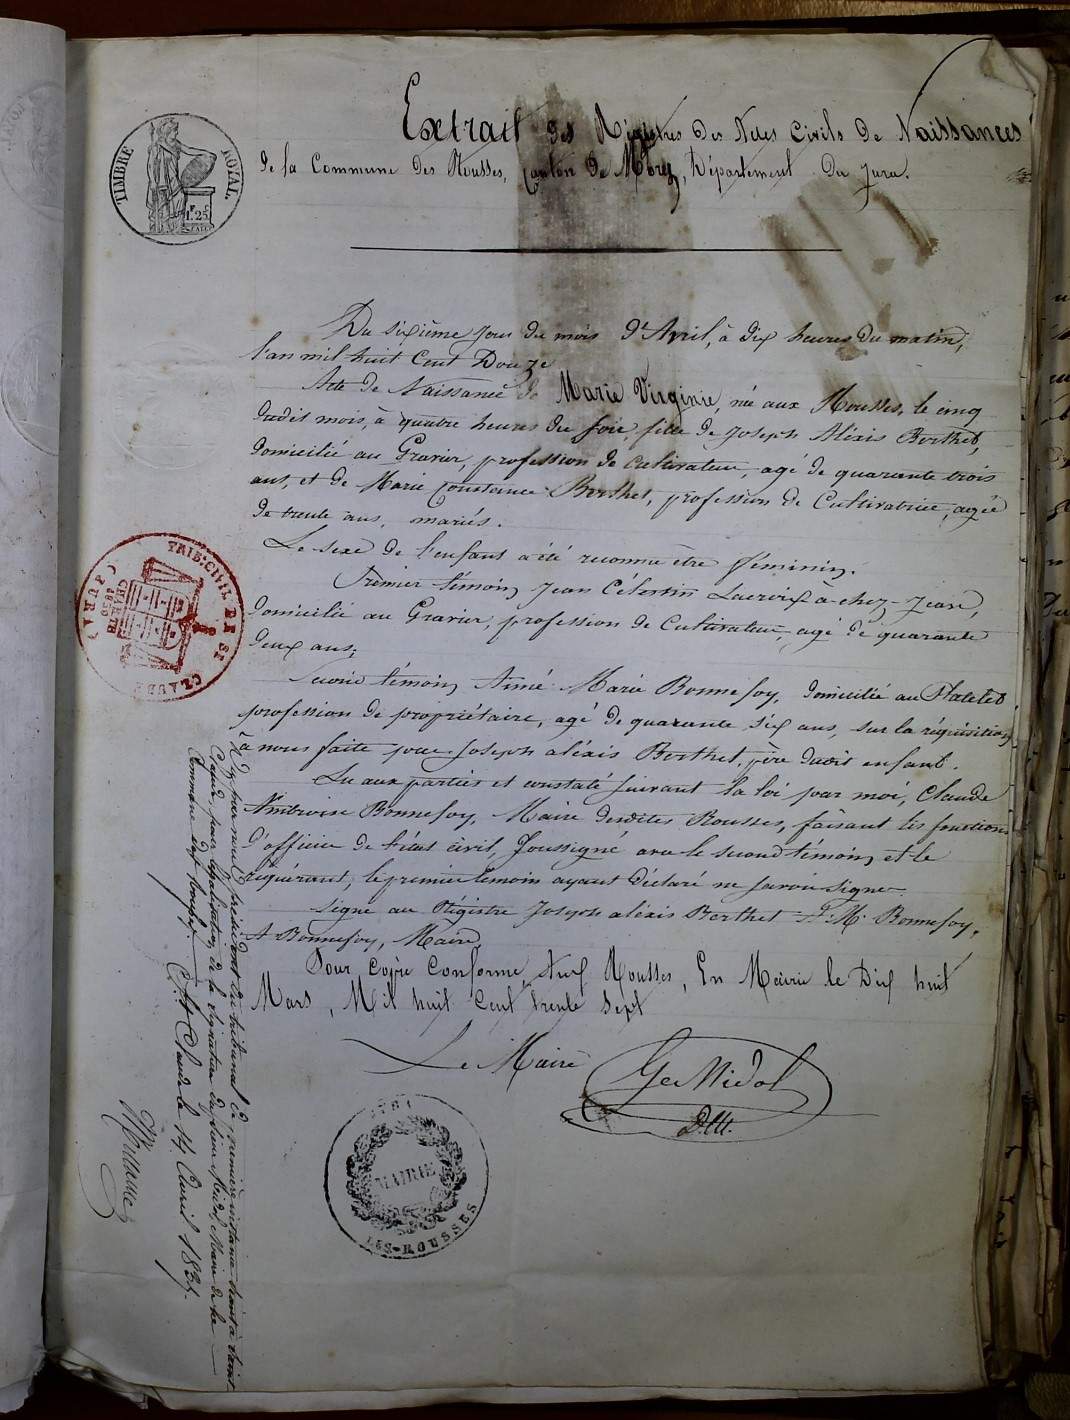 TIMBRE ROYAL.
1.25
Extrait des Régistres des Actes Civils de Naissances
de la Commune des Rousses, Canton de Morez, Département du Jura.
Du sixième jour du mois d'Avril, à dix heures du matin,
l'an mil huit Cent Douze
Acte de Naissance de Marie Virginie, née aux Rousses, le cinq
dudit mois, à quatre heures du soir, fille de Joseph Aléxis Berthet,
domicilié au Gravier, profession de cultivateur, agé de quarante trois
ans, et de Marie Constance Berthet, profession de Cultivatrice, agée
de trente ans, mariés.
Le sexe de l'enfant a été reconnu être féminin.
Prémier témoin, Jean Célestin Lacroix à chez-Jean,
domicilié au Gravier, profession de Cultivateur, agé de quarante
deux ans;
Second témoin, Aimé Marie Bonnefoy, domicilié au Platelet,
profession de propriétaire, agé de quarante six ans, sur la réquisition
à nous faite par Joseph aléxis Berthet, père dudit enfant.
Lu aux parties et constaté suivant la loi par moi, Claude
Ambroise Bonnefoy, Maire desdites Rousses, faisant les fonctions
d'officier de l'état civil, Soussigné avec le second témoin et le
réquérant, le premier témoin ayant déclaré ne savoir signer.
Signé au Régistre Joseph aléxis Berthet A. M. Bonnefoy,
A Bonnefoy, Maire.
Pour Copie Conforme, Aux Rousses, En Mairie le Dix huit
Mars, Mil huit Cent trente Sept
Le Maire
MAIRIE
LES-ROUSSES
TRIB: CIVIL DE ST CLAUDE (JURA)
CHARTE
1830
Vu par nous Président du tribunal de première instance séant à Saint
Claude, pour légalisation de la signature du sieur Nidol Maire de la
Commune des Rousses. St Claude le 14 Avril 1837.